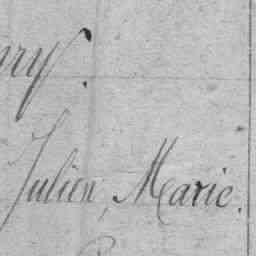 Julien, Marie.